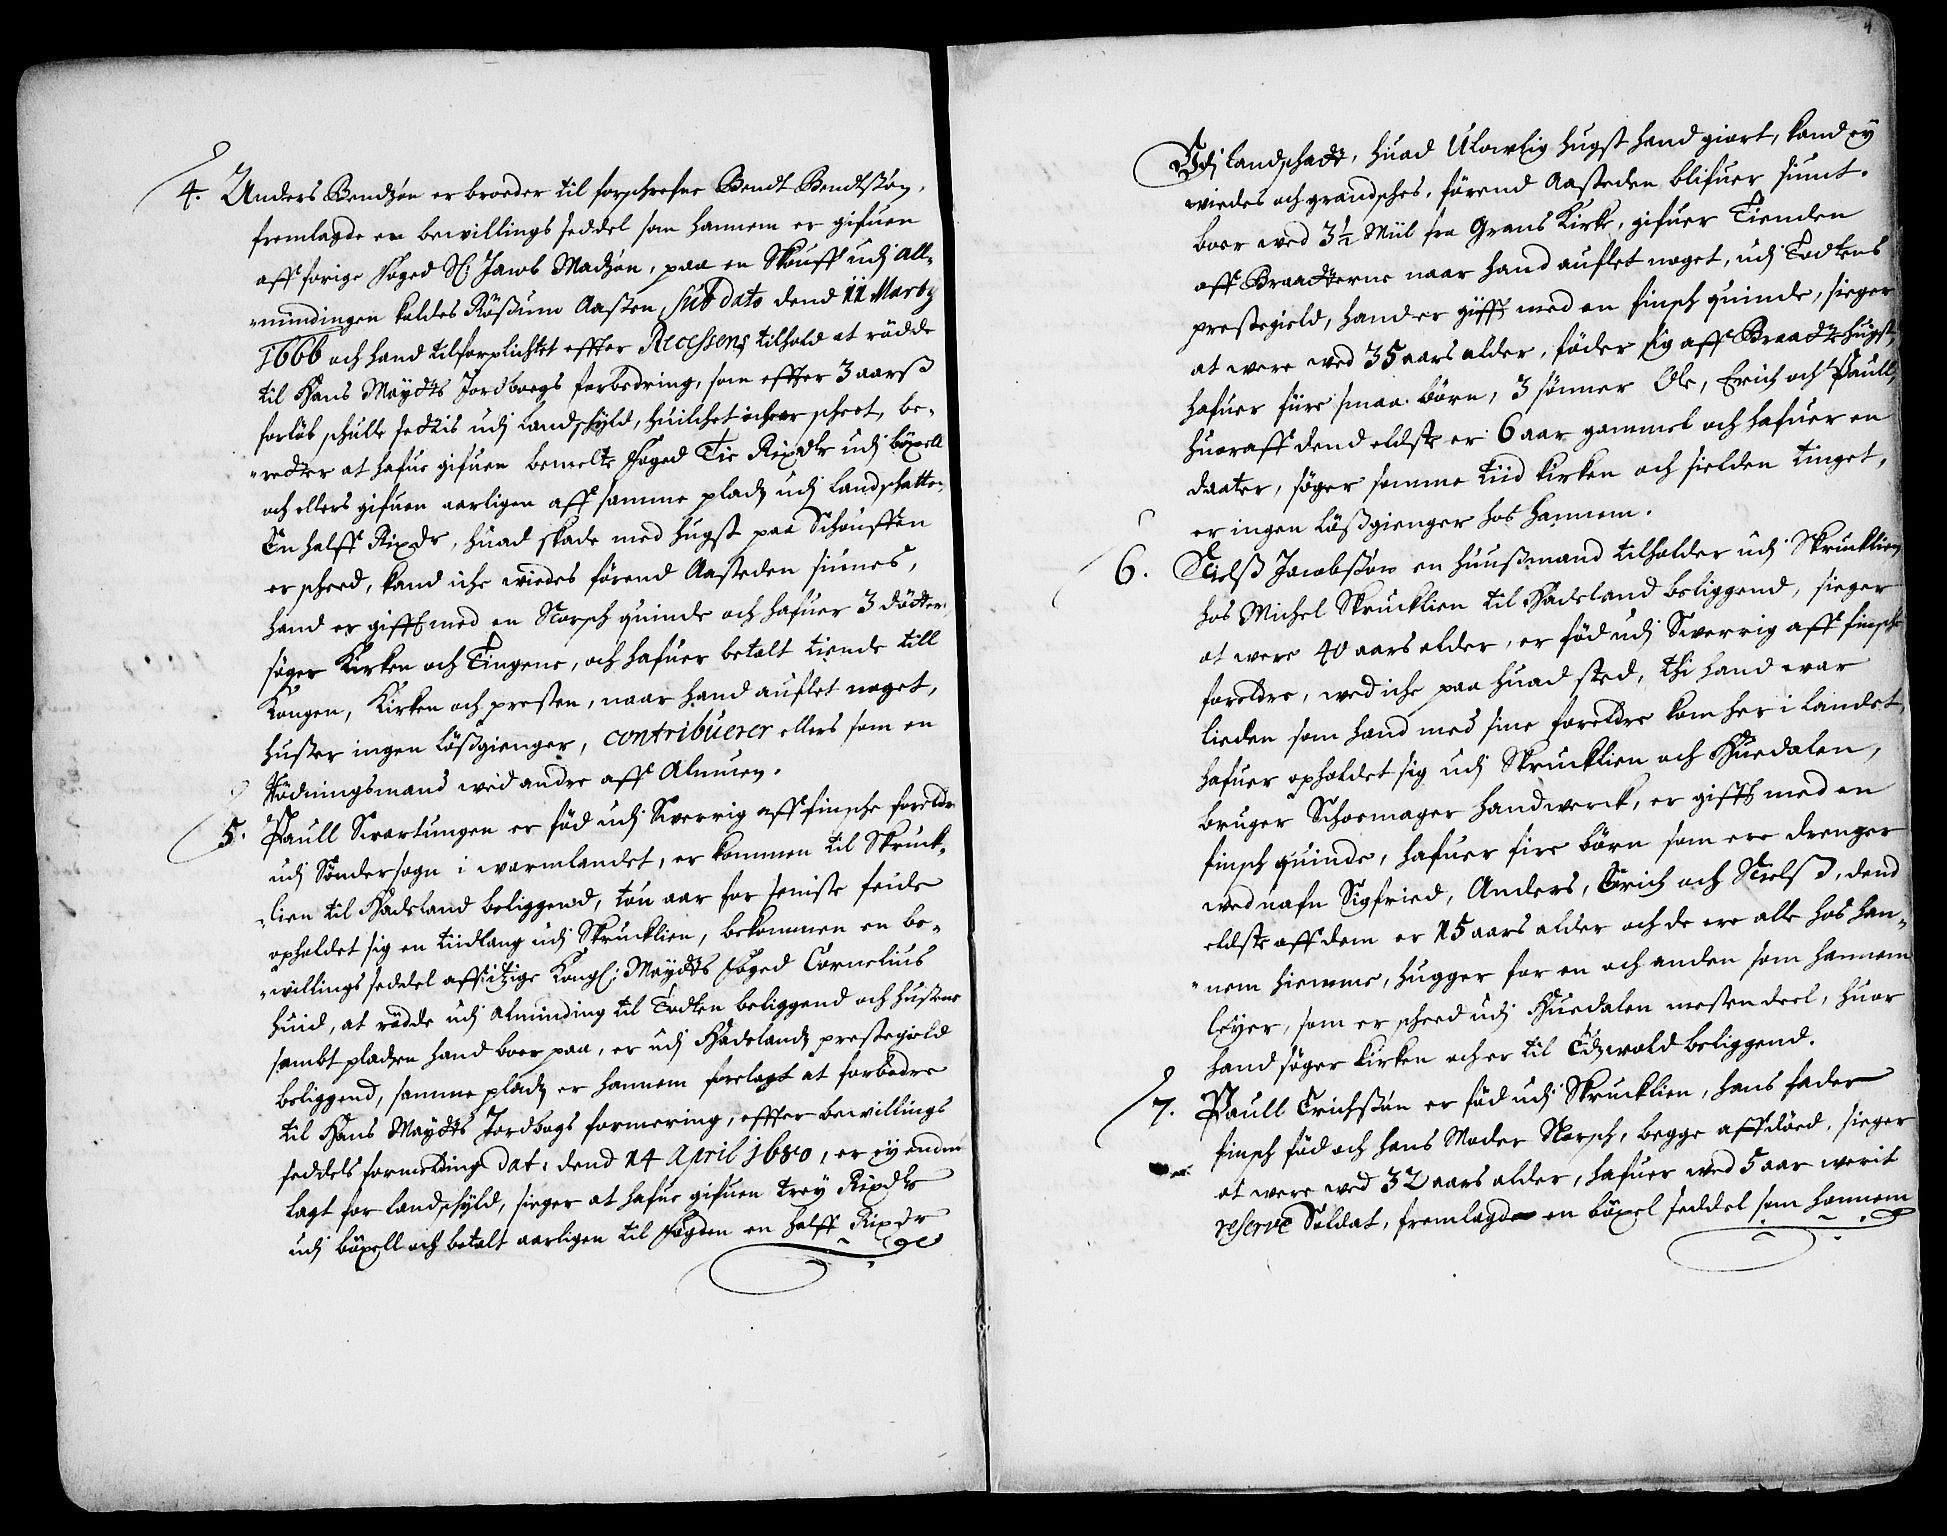 4. Anders Bendzøn er broeder til forschrefne Bendt Bendtssøn,
fremlagde en bewillings seddel som hannem er gifuen
aff forige Foged Sl: Jacob Madzøn, paa en Skouff udj All-
-mindingen kaldes Rössum Aasen, sub dato dend 11 Martz
1666 och hand tilforplichtet effter Recessens tilhold at rödde
til Hans Maydts Jordboegs forbedring, som effter 3 aarß
forløb schulle settis udj Landschyld, huilchet icke er scheet, be-
-retter at hafue gifuen bemelte Foged Tie Rixdr udj böxell
och ellers gifuen aarligen aff samme pladz udj Landschatten,
En halff Rixdr, huad skade med hugst paa Schouffen
er scheed, kand iche wiedes førend Aasteden siunes,
hand er gifft med en Norsch quinde och hafuer 3 dötter,
søger Kirken och Tingene, och hafuer betalt tiende till
Kongen, Kirken och presten, naar hand auflet noget,
huser ingen lößgienger, contribuerer ellers som en
Rödningsmand wid andre aff Almuen.
5. Paull Swartungen er fød udj Swerrig aff finsche foreldre
udj Söndersogn i warmlandet, er kommen til Skruck-
-lien til Hadeland beliggend, tou aar for seniste feide
opholdet sig en tiidlang udj Skrucklien, bekommen en be-
-willings seddel aff itzige Kongl: Maydts Foged Cornelius
Huid, at rödde udj Alminding til Todten beliggend och husene
sambt pladzen hand boer paa, er udj Hadelandz prestegield
beliggend, samme pladz er hannem forelagt at forbedre
til Hans Maydts Jordbogs formering, effter bewillings
seddels formelding dat: dend 14 April 1680, er ey enden
lagt for landschyld, sieger at hafue gifuen trey Rixdlr
udj böxell och betalt aarligen til Fogden en halff Rixdr
4
Udj Landschatt, huad Ulowlig hugst hand giort, kand ey
wiedes och grandsches, førend Aasteden blifuer siunt.
boer wed 3½ Miil fra Grans Kirke, gifuer Tienden
aff Braatterne naar hand auflet noget, udj Todtens
prestegield, hand er gifft med en finsch quinde, sieger
at were wed 35 aars alder, föder sig aff Braadte hugst,
hafuer fiire smaa børn, 3 sønner Ole, Erich och Paull,
huoraff dend eldste er 6 aar gammel och hafuer en
daater, söger somme tiid kirken och sielden tinget,
er ingen Lößgienger hos hannem.
6. Nielß Jacobssøn en huußmand tilholder udj Skrucklien
hos Michel Skrucklien til Hadeland beliggend, sieger
at were 40 aars alder, er fød udj Swerrig aff finsche
foreldre, wed iche paa huad sted, thi hand war
lieden som hand med sine foreldre kom her i Landet,
hafuer opholdet sig udj Skrucklien och Huedalen,
bruger Schoemager handwerck, er gifft med en
finsch quinde, hafuer fire børn som ere drenger
wed nafn Sigfried, Anders, Erich och Nielß, dend
eldste aff dem er 15 aars alder och de ere alle hos han-
-nem hiemme, hugger for en och anden som hannem
leyer, som er scheed udj Huedalen mesten deel, huor
hand søger kirken och er til Edzwold beliggend.
7. Paull Erichssøn er fød udj Skrucklien, hans fader
finsch fød och hans Moder Norsch, begge aff död, sieger
at were wed 32 aars alder, hafuer wed 5 aar werit
reserve Soldat, fremlagde en böxel seddel som hannem